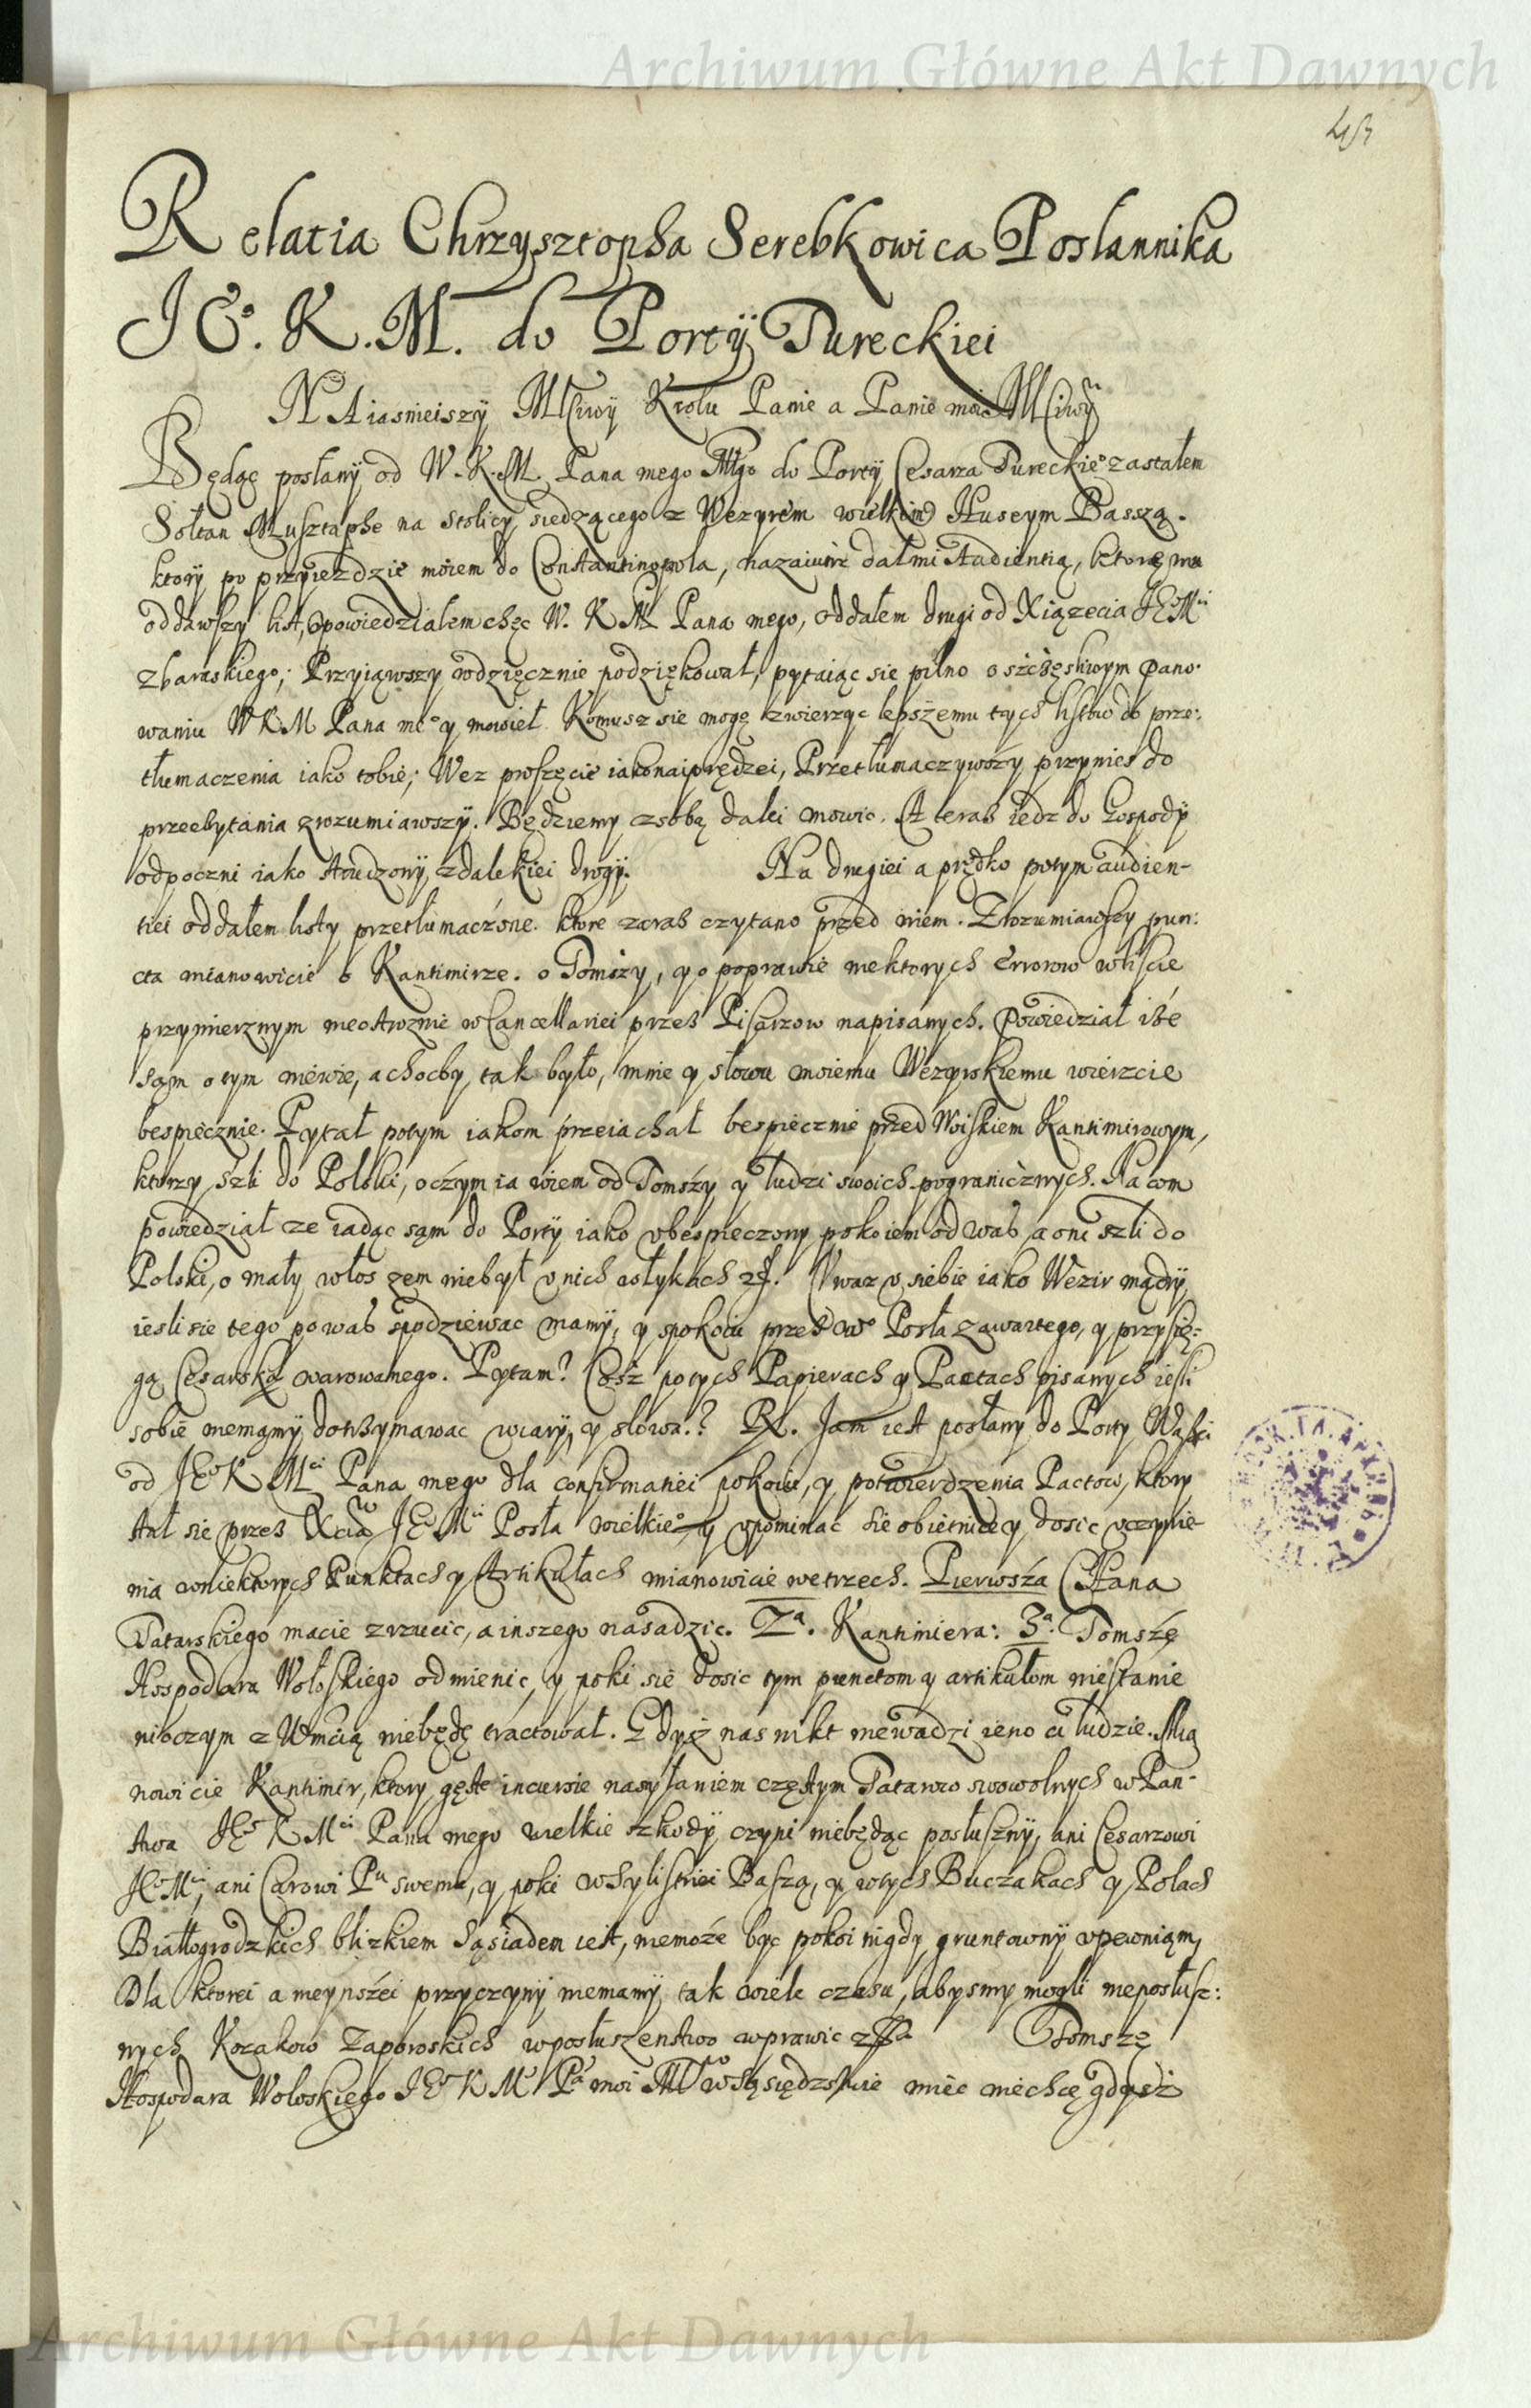 Archiwum Główne Akt Dawnych
43
Relatia Chrzysztopha Serebkowica Poslannika
JEº. K. M. do Portÿ Tureckiei
NAiasnieiszÿ Młsciwÿ Krolu Panie a Panie moi Młsciwÿ
Będąc posłanÿ od W. K. M. Pana mego Młgo do Portÿ Cesarza Tureckieº zastałem
Sołtan Musztaphe na stolicy siedzącego z Wezyrem wielkim Huseym Basszą.
ktorÿ po przyiezdzie moiem do Constantinopola, nazaiutrz dał mi Audientią, ktorę mu
oddawszy list, opowiedziałem chęc W. K M Pana mego, oddałem drugi od Xiązecia JEº Mci
Zbaraskiego; Przyiąwszy wdzięcznie podziękował, pytaiąc sie pilno o szczęsliwym pano-
waniu W K M Pana meº y mowieł Komusz sie mogę zwierzyc lepszemu tych listow do prze:
tłumaczenia iako tobie; Wez proszęcie iakonaiprędzei, Przetłumaczywszy przynies do
przeczytania zrozumiawszÿ. Będziemy zsobą dalei mowic. A teras iedz do Gospodÿ
odpoczni iako strudzonÿ zdalekiei drogÿ. Na drugiei a prędko potym audien-
tiei oddałem listy przetlumaczone. ktore zaras czytano przed niem. Zrozumiawszy pun:
cta mianowicie o Kantimirze. o Tomszy, y o poprawie niektorych Errorow wliscie
przymierznym nieostroznie w Cancellariei przes Pisarzow napisanych. Powiedział isze
sam o tym niewie, a chocby tak było, mnie y słowu moiemu Wezyrskiemu wierzcie
bespiecznie. Pytał potym iakom przeiachał bespiecznie przed Woiskiem Kantimirowym,
ktorzy szli do Polski, o czym ia wiem od Tomszy y ludzi swoich pogranicznych. Na com
powiedział ze iadąc sam do Portÿ iako vbespieczony pokoiem od was, a oni szli do
Polski, o mały włos zem niebył v nich w łykach. Vwaz v siebie iako Wezir mądrÿ
iesli sie tego po was spodziewac mamÿ, y spokoiu przes Posła zawartego, y przysię=
gą Cesarską warowanego. Pytam? Cosz potych Papierach y Pactach pisanych iesli
sobie niemamÿ dotrzymawac wiarÿ y słowa.? Rx. Jam iest posłany do Porty Waszei
od JEº K Mci Pana mego dla confirmatiei pokoiu, y potwierdzenia Pactow, ktory
stał sie przes Xcia JEº Mci Posła wielkieº y vpominac sie obietnice y dosic vczynie-
nia wniektorych Punktach y Artikułach mianowicie wetrzech. Pierwsza CHana
Tatarskiego macie zrzucic, a inszego nasadzic. 2ª. Kantimiera: 3ª. Tomszę
Hospodara Wołoskiego odmienic, y poki się dosic tym punctom y artikułom niestanie
nioczym z Wmcią niebędę tractował. Gdysz nas nikt niewadzi ieno ci ludzie. Mia
nowicie Kantimir, ktory gęste incursie nasyłaniem częstym Tatarow swowolnych w Pan-
stwa JEº K Mci Pana mego wielkie szkodÿ czyni niebędąc posłusznÿ, ani Cesarzowi
JEº Mci, ani Carowi Pu swemu, y poki wSylistriei Baszą, y wtych Buczakach y Polach
Białłogrodzkich blizkiem sąsiadem iest, niemoze byc pokoi nigdy gruntownÿ vpewniam,
Dla ktorei a nieynszei przyczynÿ niemamÿ tak wiele czasu, abysmy mogli nieposłusz:
nych Kozakow Zaporoskich wposłuszenstwo wprawic. Tomszę
Hospodara Wołoskiego JEº K M Pª moi Mł w sąsiędzstwie miec niechcę gdysz
Archiwum Główne Akt Dawnych